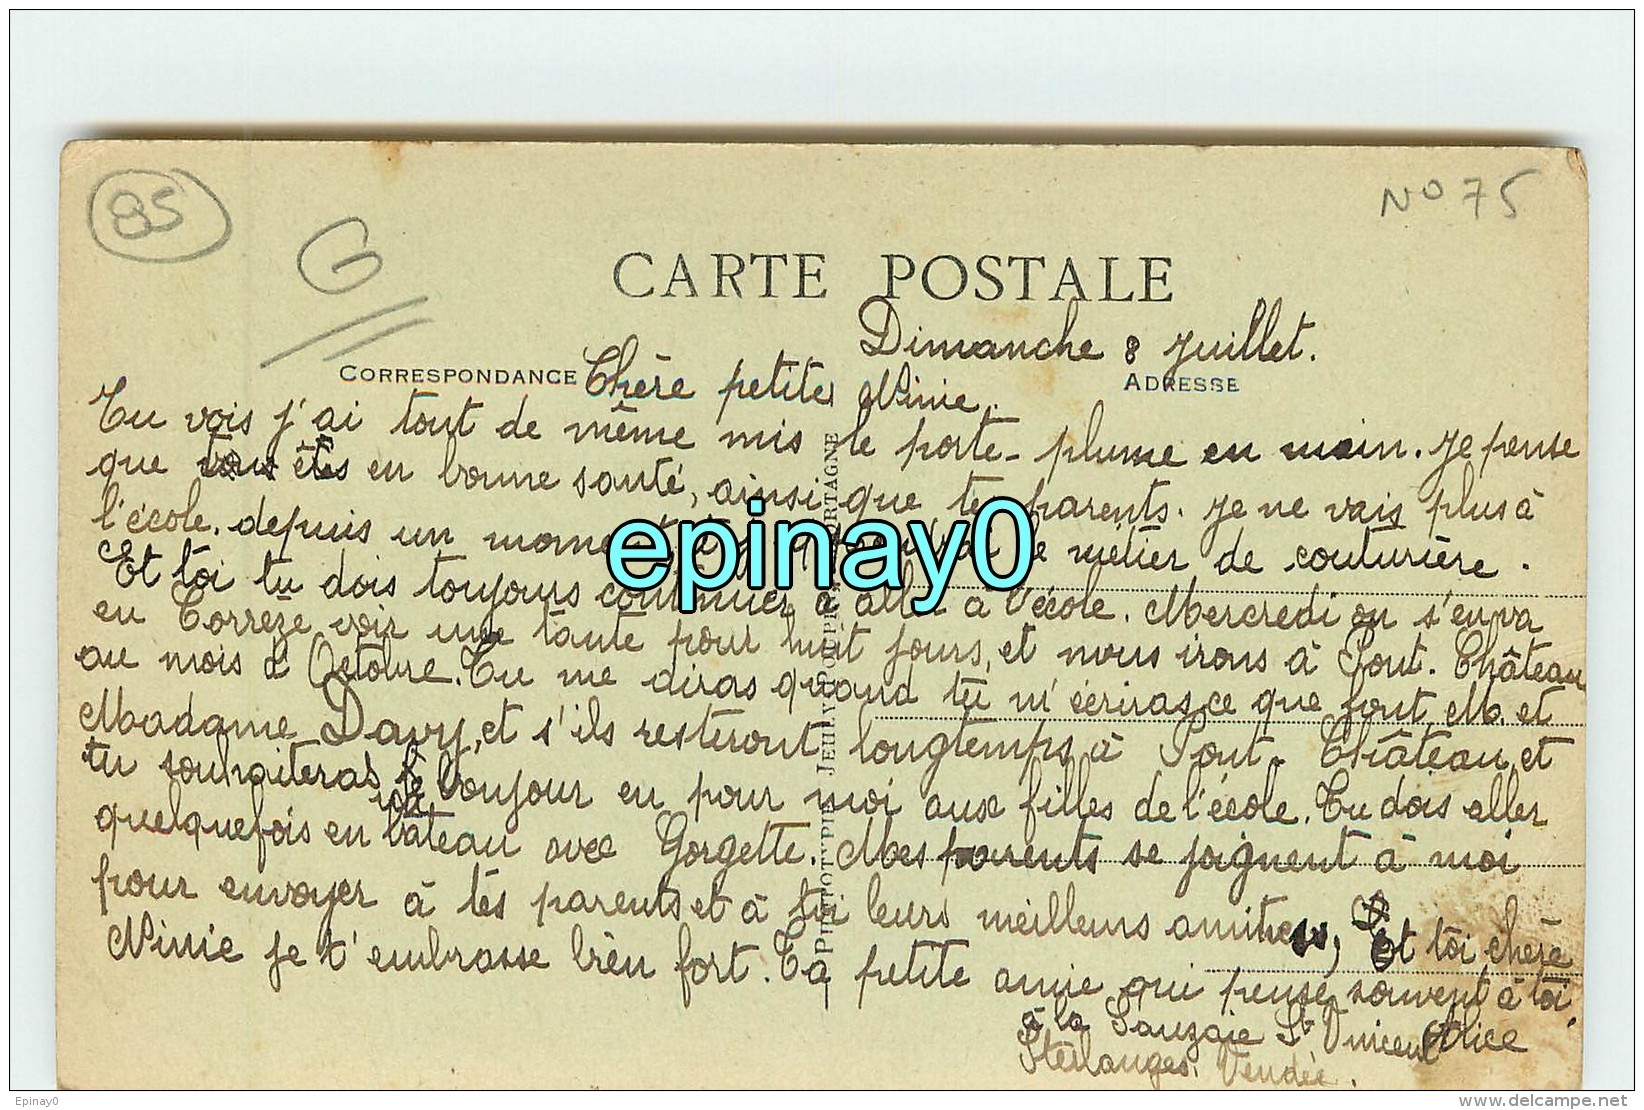 85
G
N° 75
CARTE POSTALE
Dimanche 8 Juillet.
CORRESPONDANCE
ADRESSE
Chère petite Ninie.
Tu vois j'ai tout de même mis le porte-plume en main. Je pense
que vous êtes en bonne santé, ainsi que tes parents. Je ne vais plus à
l'école. depuis un moment et le métier de couturière.
Et toi tu dois toujours continuer à aller à l'école. Mercredi on s'en va
en Corrèze voir une tante pour huit jours, et nous irons à Pont-Château
au mois d'Octobre. Tu me diras quand tu m'écriras ce que font M. et
Madame Davy, et s'ils resteront longtemps à Pont-Château, et
tu souhaiteras le bonjour en pour moi aux filles de l'école. Tu dois aller
quelquefois en bâteau avec Gorgette. Mes parents se joignent à moi
pour envoyer à tes parents et à toi leurs meilleurs amitiés, Et toi chère
Ninie je t'embrasse bien fort. Ta petite amie qui pense souvent à toi.
Alice
à la Sauzaie St Vincent
Sterlanges. Vendée.
PHOTOTYPIE JEHLY-POUPIN, MORTAGNE
epinay0
Epinay0
delcampe.net